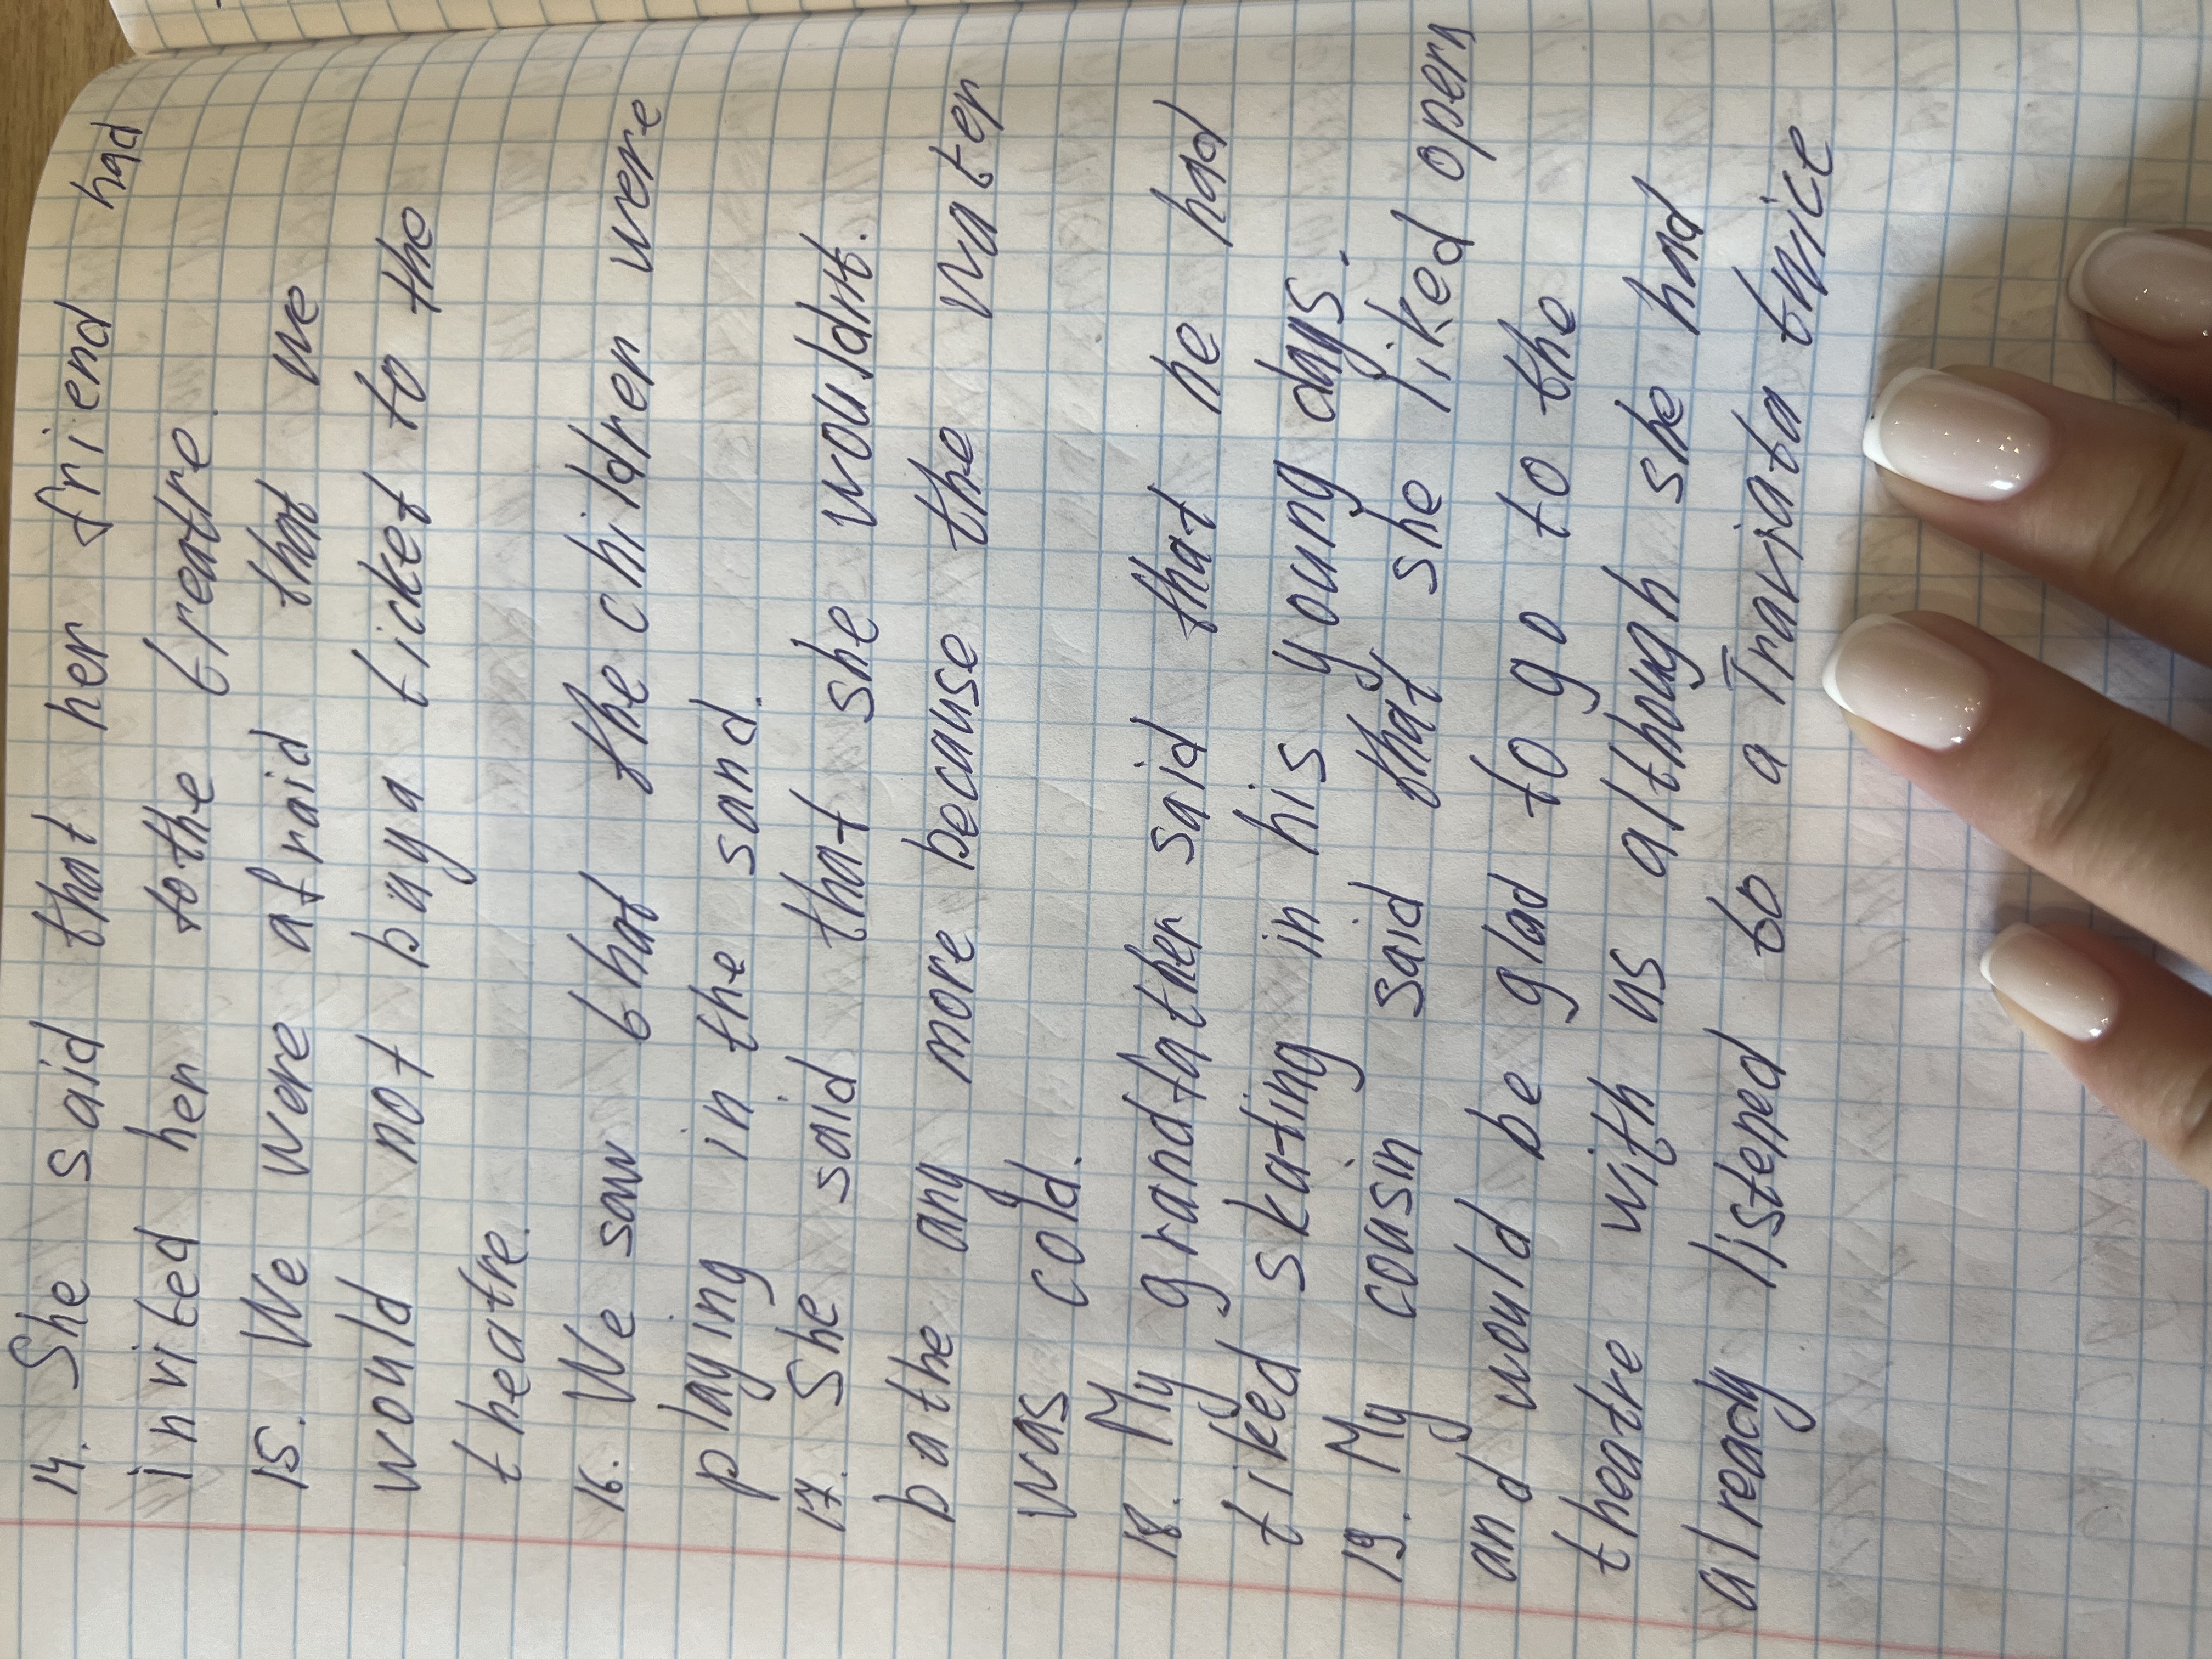 14. She said that her friend had
invited her to the treatre.
15. We were afraid that we
would not buy a ticket to the
theatre.
16. We saw that the children were
playing in the sand.
17. She said that she wouldnt.
bathe any more because the water
was cold.
18. My grandfather said that he had
tiked skating in his young days.
19. My cousin said that she liked opera
and would be glad to go to the
theatre with us although she had
already listened to a Traviata twice